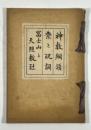 神教綱領
祭と祝詞
富士山と
天照教社